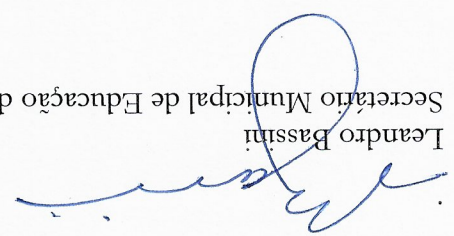 Leandro Bassini
Secretário Municipal de Educação d